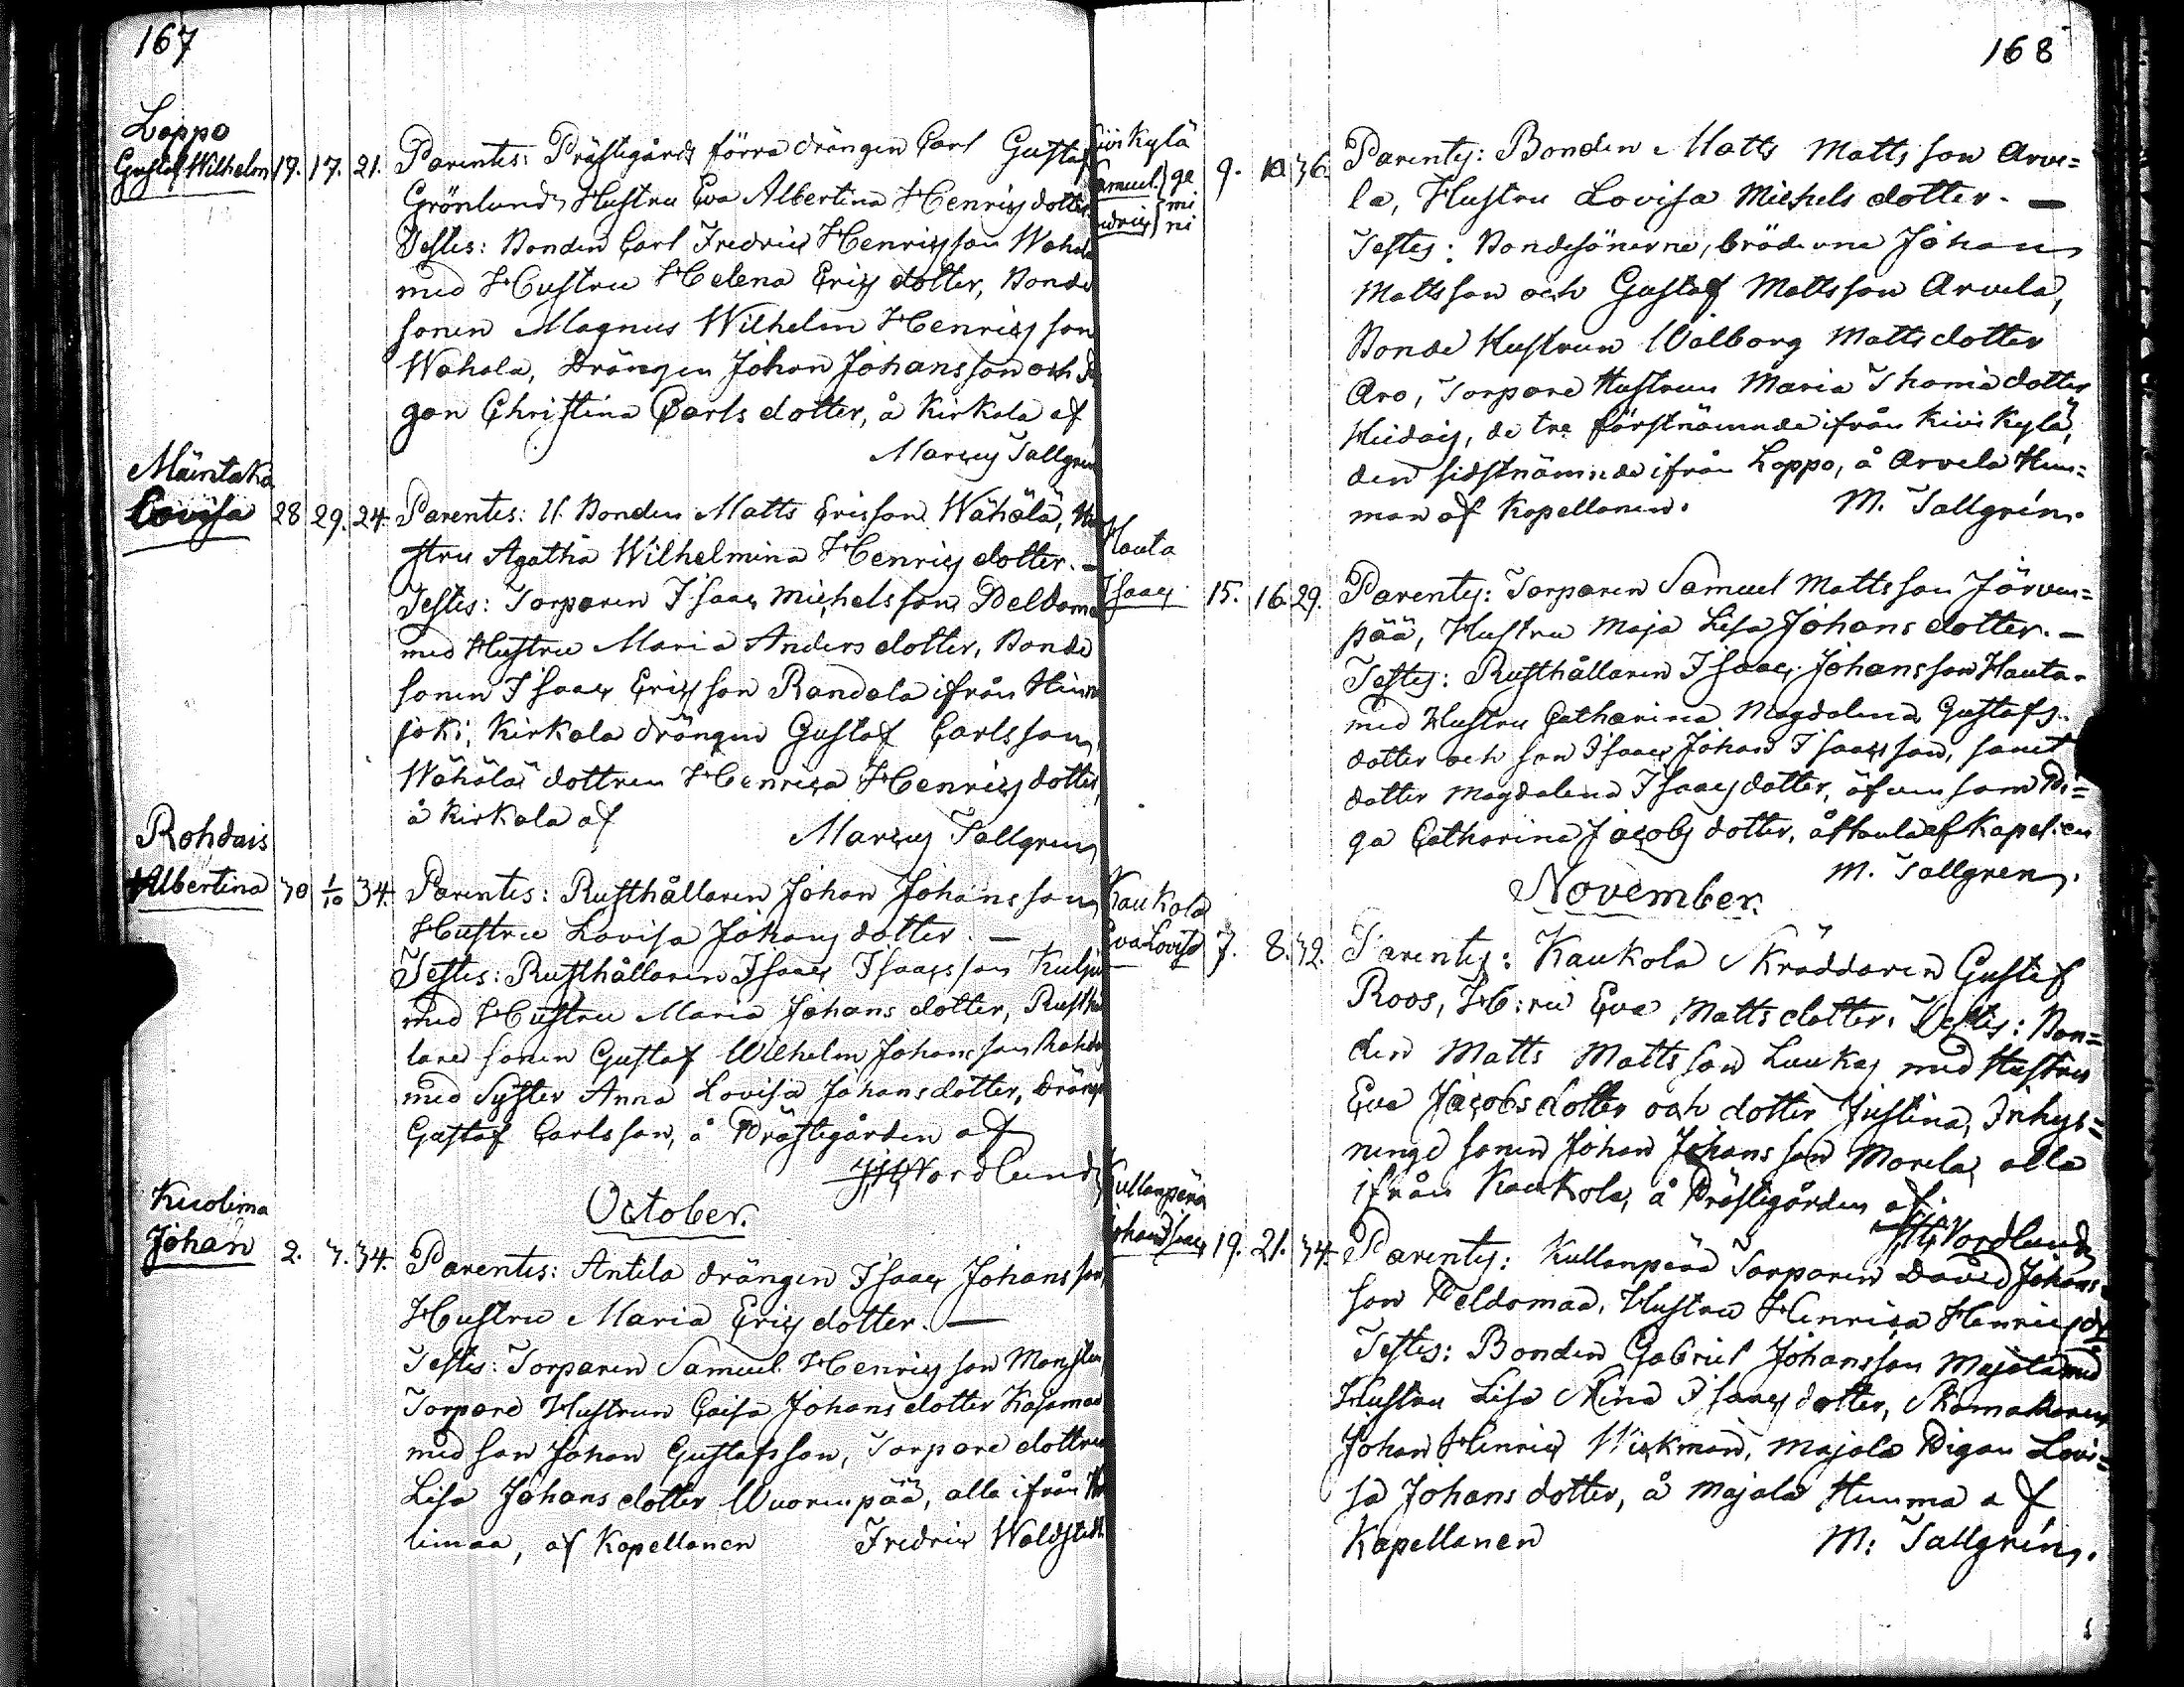 167
Loppo
Gustaf Wilhelm 17. 17. 21. Parentes: Prästegårds förra drängen Carl Gustaf
Grönlund, Hustru Eva Albertina Henricsdotter
Testes: Bonden Carl Fredric Henricsson Wahala
med Hustru Helena Ericsdotter, Bonde
sonen Magnus Wilhelm Henricsson
Wahala, Drängen Johan Johansson och Pi
gan Christina Carlsdotter, å Kirkola af
Marcus Tallgren
Mäntaka
Lovisa 28 29. 24. Parentes: U. Bonden Matts Ericsson Wähälä, Hu
stru Agatha Wilhelmina Henricsdotter. —
Testes: Torparen Isaac Michelsson Peldoma
med Hustru Maria Andersdotter, Bonde
sonen Isaac Ericsson Randala ifrån Hinn
joki, Kirkola drängen Gustaf Carlsson,
Wähälä dottren Henrica Henricsdotter,
å Kirkola af
Marcus Tallgren
Rohdais
Albertina 30 1/10 34. Parentes: Rusthållaren Johan Johansson
Hustru Lovisa Johansdotter. —
Testes: Rusthållaren Isaac Isaacsson Kulju
med Hustru Maria Johansdotter, Rusthål
lare sonen Gustaf Wilhelm Johansson Rohda
med Syster Anna Lovisa Johansdotter, Dräng
Gustaf Carlsson, å Prästegården af
Nordlund
October.
Kuolima
Johan 2. 3. 34. Parentes: Antila drängen Isaac Johansson
Hustru Maria Ericsdotter. —
Testes: Torparen Samuel Henricsson
Torpare Hustrun Caisa Johansdotter Kajamaa
med son Johan Gustafsson, Torpare dottren
Lisa Johansdotter Wuorenpää, alla ifrån
limaa, af Kapellanen Fredric Waldstedt
168
Kivikylä
Samuel } ge
Fredric } mi
ni
9. 10 36. Parentes: Bonden Matts Mattsson Arve=
la, Hustru Lovisa Michelsdotter. —
Testes: Bondesönerne, bröderne Johan
Mattsson och Gustaf Mattsson Arvela,
Bonde Hustrun Walborg Mattsdotter
Aro, Torpare Hustrun Maria Thomædotter
Heidais, de tre förstnämnde ifrån Kivikylä,
den sidstnämnde ifrån Loppo, å Arvela Hem=
man af Kapellanen. M. Tallgrén.
Hauta
Isaac 15. 16. 29. Parentes: Torparen Samuel Mattsson Järven=
pää, Hustru Maja Lisa Johansdotter. —
Testes: Rusthållaren Isaac Johansson Hauta
med Hustru Catharina Magdalena Gustafs
dotter och son Isaac Johan Isaacsson, samt
dotter Magdalena Isaacsdotter, äfvensom Pi=
ga Catharina Jacobsdotter, å Hauta af Kapel:en
M. Tallgren.
November.
Kaukola
Eva Lovisa 7. 8. 32. Parentes: Kaukola Skräddaren Gustaf
Roos, H:ru Eva Mattsdotter. Testes: Bon=
den Matts Mattsson Luukas med Hustru
Eva Jacobsdotter och dotter Justina, Inhys=
ninge sonen Johan Johansson Morela, alla
ifrån Kaukola, å Prästegården af
Nordlund
Kullanperä
Johan Isaac 19. 21. 34. Parentes: Kullanperä Torparen David Johans
son Peldomaa, Hustru Henrica Henricsdr
Testes: Bonden Gabriel Johansson Majala med
Hustru Lisa Stina Isaacsdotter, Skomakaren
Johan Henric Wickman, Majala Pigan Lovi=
sa Johansdotter, å Majala Hemma af
Kapellanen M: Tallgrén.